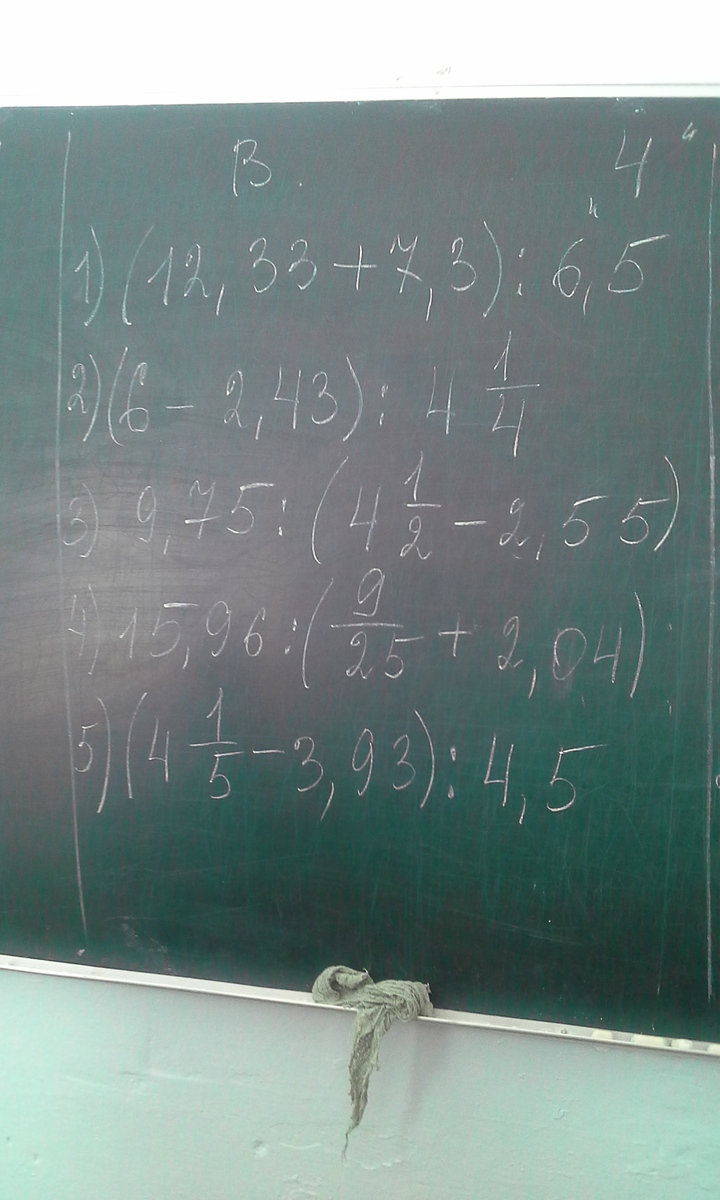 В. 4
1) (12,33+7,3):6,5
2) (6-2,43):4 1/4
3) 9,75:(4 1/2-2,55)
4) 15,96:(9/25+2,04):
5) (4 1/5-3,93):4,5